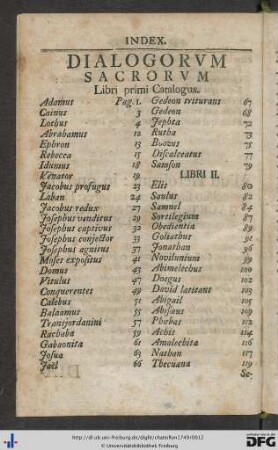 INDEX.
DIALOGORVM
SACRORVM
Libri primi Catalogus.
Adamus Pag. 1.
Cainus 3
Lothus 4
Abrahamus 10
Ephron 13
Rebecca 15
Idumeus 18
Venator 19
Jacobus profugus 23
Laban 24
Jacobus redux 27
Josephus venditus 29
Josephus captivus 32
Josephus conjector 33
Josephus agnitus 37
Moses expositus 41
Domus 43
Vitulus 47
Conquerentes 49
Calebus 51
Balaamus 55
Transjordanini 57
Rachaba 59
Gabaonita 61
Josua 63
Jaël 66
Gedeon triturans 67
Gedeon 68
Jephta 72
Rutha 73
Boozus 75
Discalceatus 77
Samson 79
LIBRI II.
Elis 80
Saulus 82
Samuel 84
Sortilegium 87
Obedientia 89
Goliathus 91
Jonathan 96
Novilunium 99
Abimelechus 100
Doegus 102
David latitans 103
Abigail 105
Abisaus 109
Phæbas 112
Achis 114
Amalechita 116
Nathan 117
Thecuana 119
Se-
http://dl.ub.uni-freiburg.de/diglit/chatsillon1749/0012
© Universitätsbibliothek Freiburg
gefördert durch die
DFG